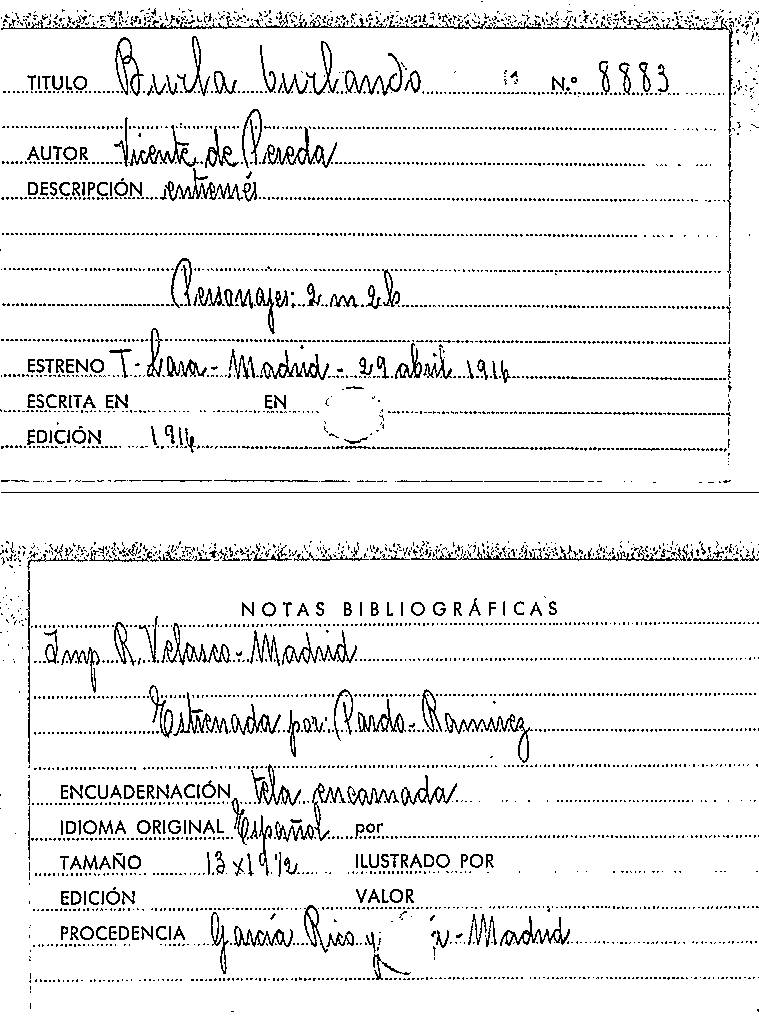 TITULO Burla burlando N.º 8883
AUTOR Vicente de Pereda
DESCRIPCIÓN entremés
Personajes: 2 m 2 h
ESTRENO T- Lara - Madrid - 29 abril 1916
ESCRITA EN EN
EDICIÓN 1916
NOTAS BIBLIOGRÁFICAS
Imp R. Velasco - Madrid
Estrenada por: Pardo - Ramirez
ENCUADERNACIÓN tela encarnada
IDIOMA ORIGINAL Español por
TAMAÑO 13 x 19 1/2 ILUSTRADO POR
EDICIÓN VALOR
PROCEDENCIA García Rico y - Madrid